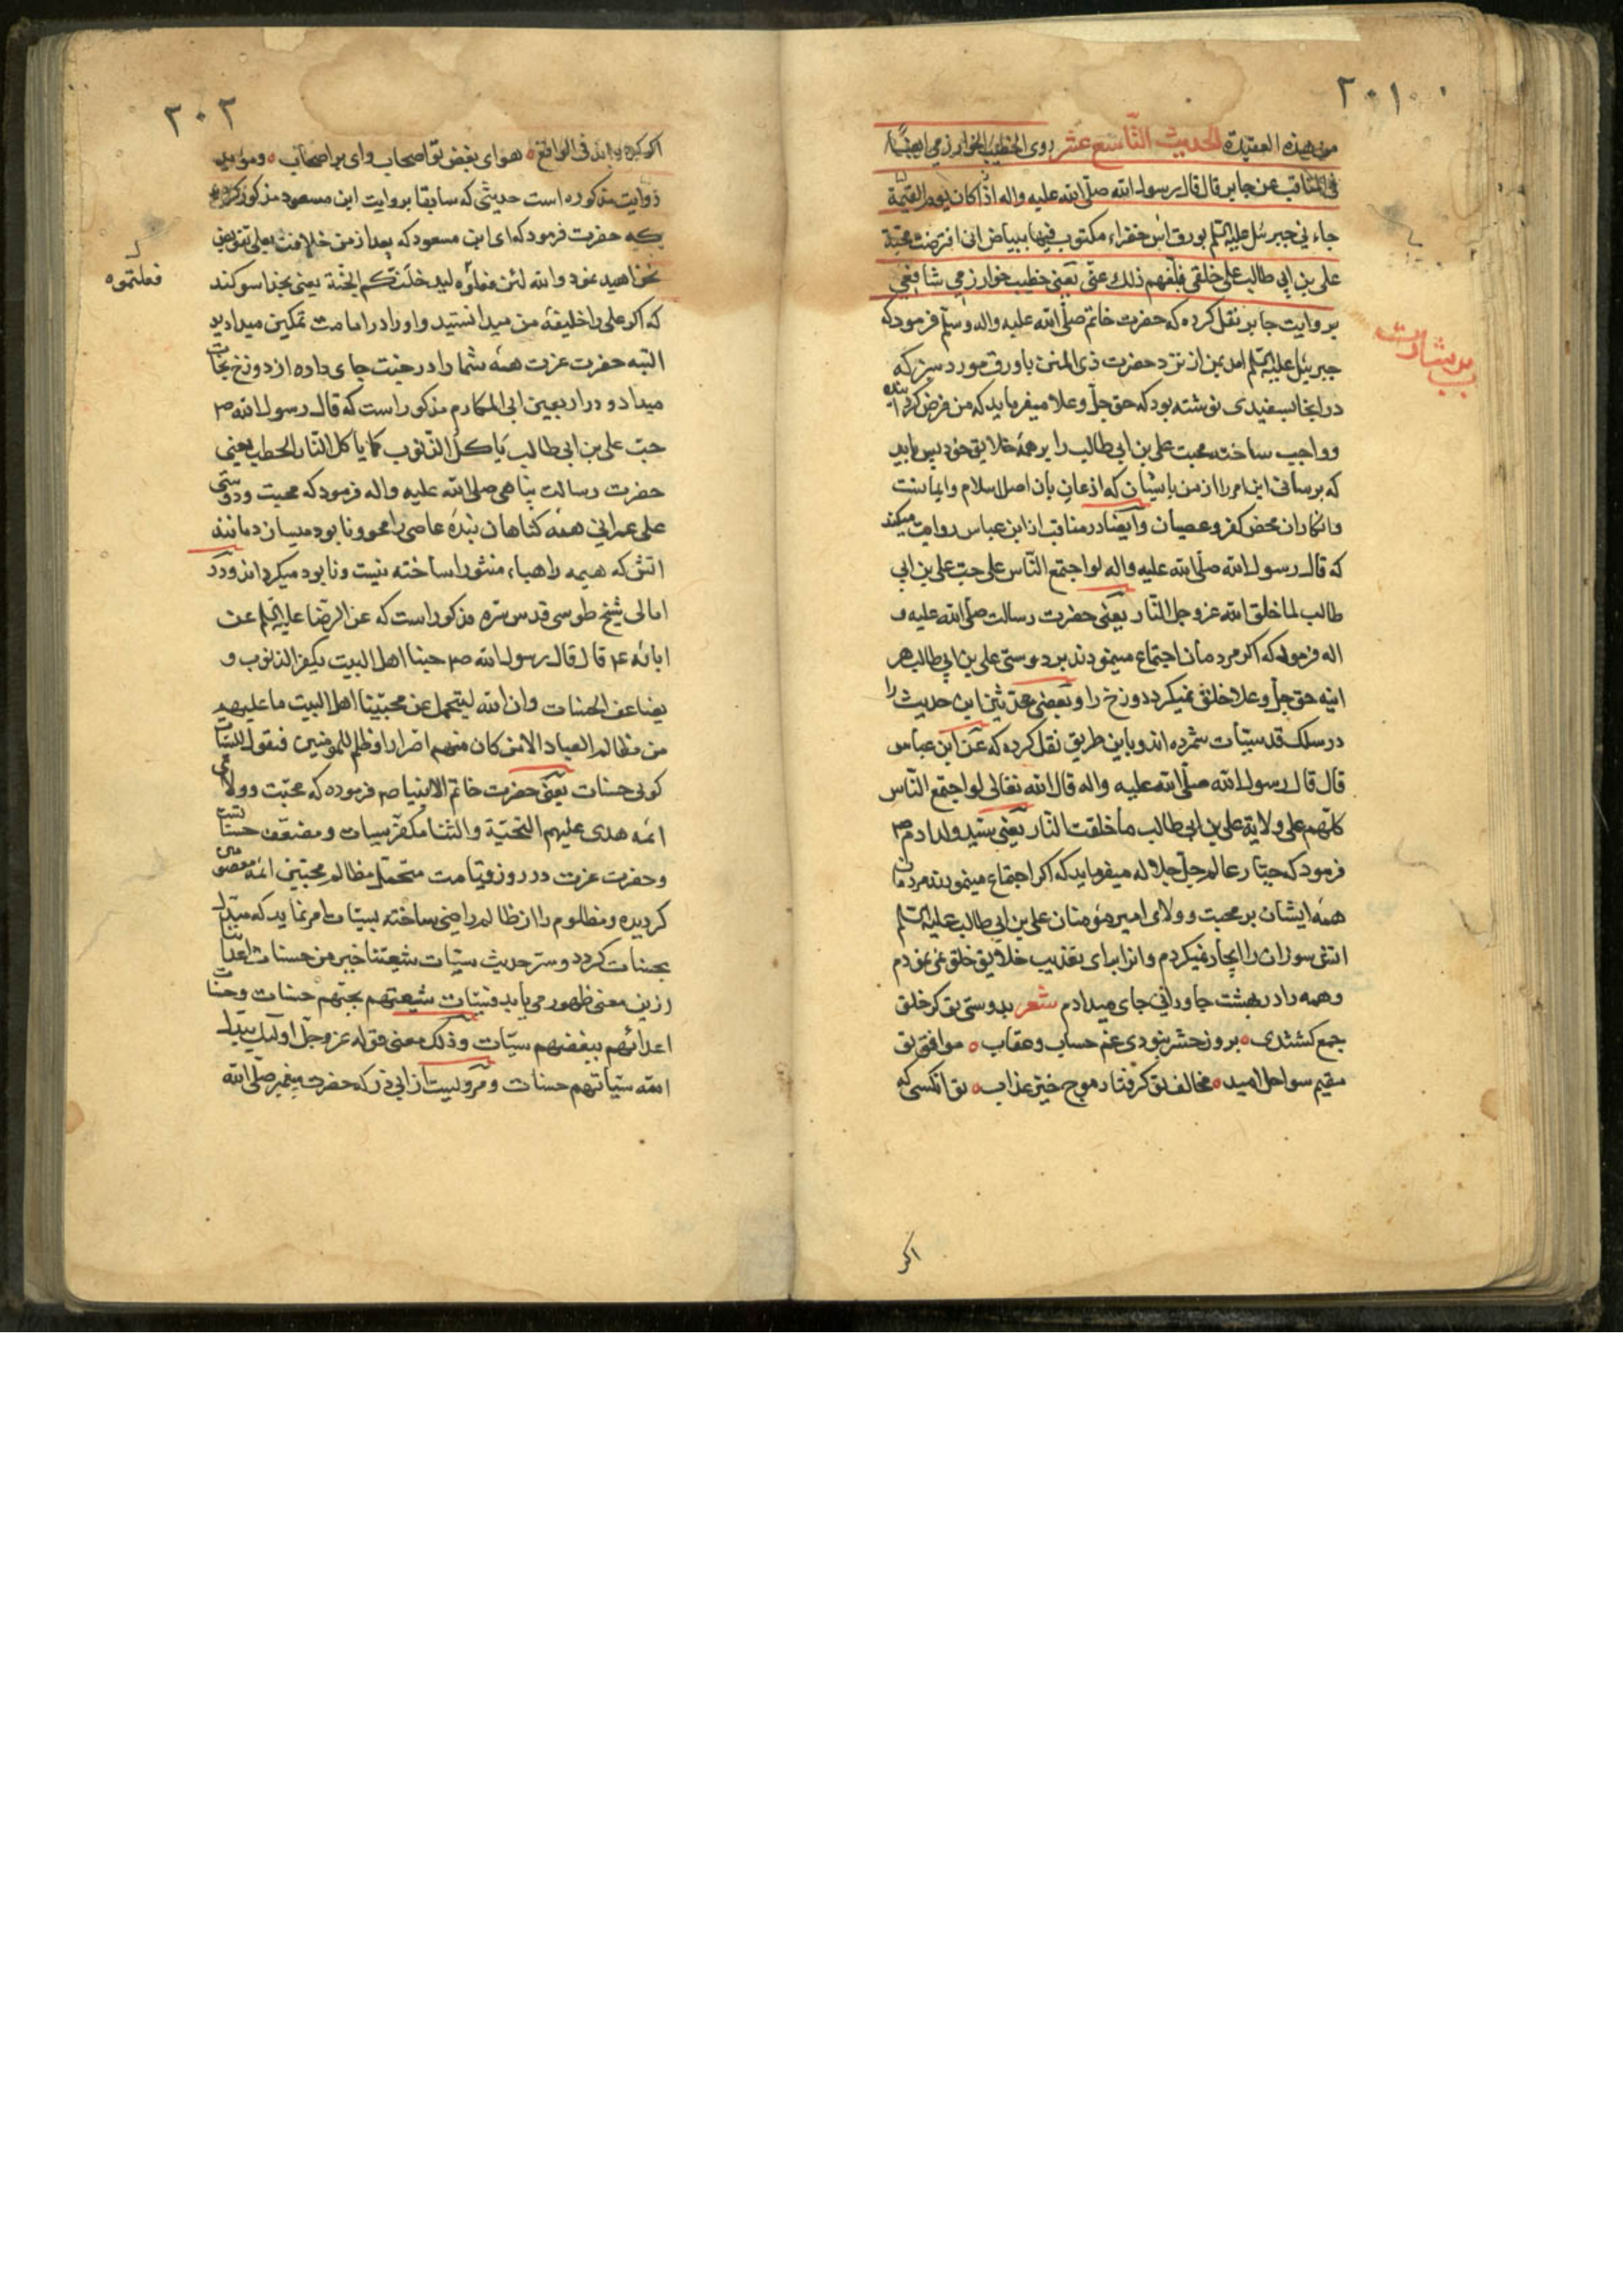 ۲۰۱
من هذه العقیدة الحدیث التّاسع عشر روی الخطیب الخوارزمی ایضًا
فی المناقب عن جابر قال قال رسول الله صلّی الله علیه واله اذا کان یوم القیمة
جاءنی جبرئیل علیه السّلم بورق اس خضراء مکتوب فیها ببیاض انی افترضت محبّة
علی بن ابی طالب علی خلقی فبلّغهم ذلک عنّی یعنی خطیب خوارزمی شافعی
بروایت جابر نقل کرده که حضرت خاتم صلّی الله علیه واله وسلّم فرمود که
جبرئیل علیه السّلم امد بمن از نزد حضرت ذی المنن با ورق مورد سبز که
در انجا بسفیدی نوشته بود که حق جلّ وعلا میفرماید که من فرض کرده
وواجب ساخته محبت علی بن ابی طالب را بر همهٔ خلایق خود پس باید
که برسانی این امر را از من باشیان که اذعان بان اصل اسلام وایمانست
وانکاران محض کفر وعصیان وایضا در مناقب از ابن عباس روایت میکند
که قال رسول الله صلّی الله علیه واله لو اجتمع النّاس علی حبّ علی بن ابی
طالب لما خلق الله عزوجل النّار یعنی حضرت رسالت صلّی الله علیه و
اله فرموده که اکر مردمان اجتماع مینمودند بر دوستی علی بن ابی طالب هر
اینه حق جلّ وعلا خلق نمیکرد دوزخ را وبعضی محدّثین این حدیث را
در سلک قدسیّات شمرده اند وباین طریق نقل کرده که عن ابن عباس
قال قال رسول الله صلّی الله علیه واله قال الله تعالی لو اجتمع النّاس
کلّهم علی ولایة علی بن ابی طالب ما خلقت النّار یعنی سیّد ولد ادم ص
فرمود که جبّار عالم جلّ جلاله میفرماید که اکر اجتماع مینمودند مردمان
همه ایشان بر محبت وولای امیر مؤمنان علی بن ابی طالب علیه السّلم
اتش سوزان را ایجاد نمیکردم وانرا برای تعذیب خلایق خلق نمی نمودم
وهمه را در بهشت جاودانی جای میدادم شعر بدوستی تو کر خلق
جمع کشتندی ٥ بروز حشر نبودی غم حساب وعقاب ٥ موافق تو
مقیم سواحل امید ٥ مخالف تو کرفتار موج خیز عذاب ٥ تو انکسی که
اکر
۲۰۲
هوای بغض تو اصحاب وای بر اصحاب ٥ ومؤید
روایت مذکوره است حدیثی که سابقا بروایت ابن مسعود مذکور کردید
که حضرت فرمود که ای ابن مسعود که بعد از من خلافت بعلی تفویض
نخواهید نمود والله لئن فعلوه لیدخلنّکم الجنّة یعنی بخدا سوکند
فعلتموه
که اکر علی را خلیفهٔ من میدانستید واورا در امامت تمکین میدادید
البته حضرت عزت همهٔ شما را در جنت جای داده از دوزخ نجات
میداد ودر اربعین ابی المکارم مذکور است که قال رسول الله ص
حبّ علی بن ابی طالب یاکل الذّنوب کما یاکل النّار الحطب یعنی
حضرت رسالت پناهی صلی الله علیه واله فرمود که محبت ودوستی
علی عمرانی همهٔ کناهان بندهٔ عاصی را محو ونابود میسازد مانند
اتش که هیمه را هباء منثورا ساخته نیست ونابود میکرداند ودر
امالی شیخ طوسی قدس سرّه مذکور است که عن الرّضا علیه السّلم عن
ابائه ع قال قال رسول الله ص حبنا اهل البیت یکفر الذنوب و
یضاعف الحسنات وان الله لیتحمل عن محبّینا اهل البیت ما علیهم
من مظالم العباد الا من کان منهم اضرارا وظلم للمؤمنین فیقول للسّیّات
کونی حسنات یعنی حضرت خاتم الانبیا ص فرموده که محبّت وولای
ائمه هدی علیهم التحیّة والثّنا مکفّر سیات ومضعّف حسنات است
وحضرت عزت در روز قیامت متحمّل مظالم محبّین ائمهٔ معصومین
کردیده ومظلوم را از ظالم راضی ساخته بسیّات امر نماید که مبدّل
بحسنات کردد وسرّ حدیث سیّات شیعتنا خیر من حسنات اعدائنا
ازین معنی ظهور می یابد فسیّات شیعتهم بحبّهم حسنات وحسنات
اعدائهم ببغضهم سیّات وذلک معنی قوله عزوجلّ اولئک یبدّل
الله سیّاتهم حسنات ومرویست از ابی ذر که حضرت پیغمبر صلّی الله